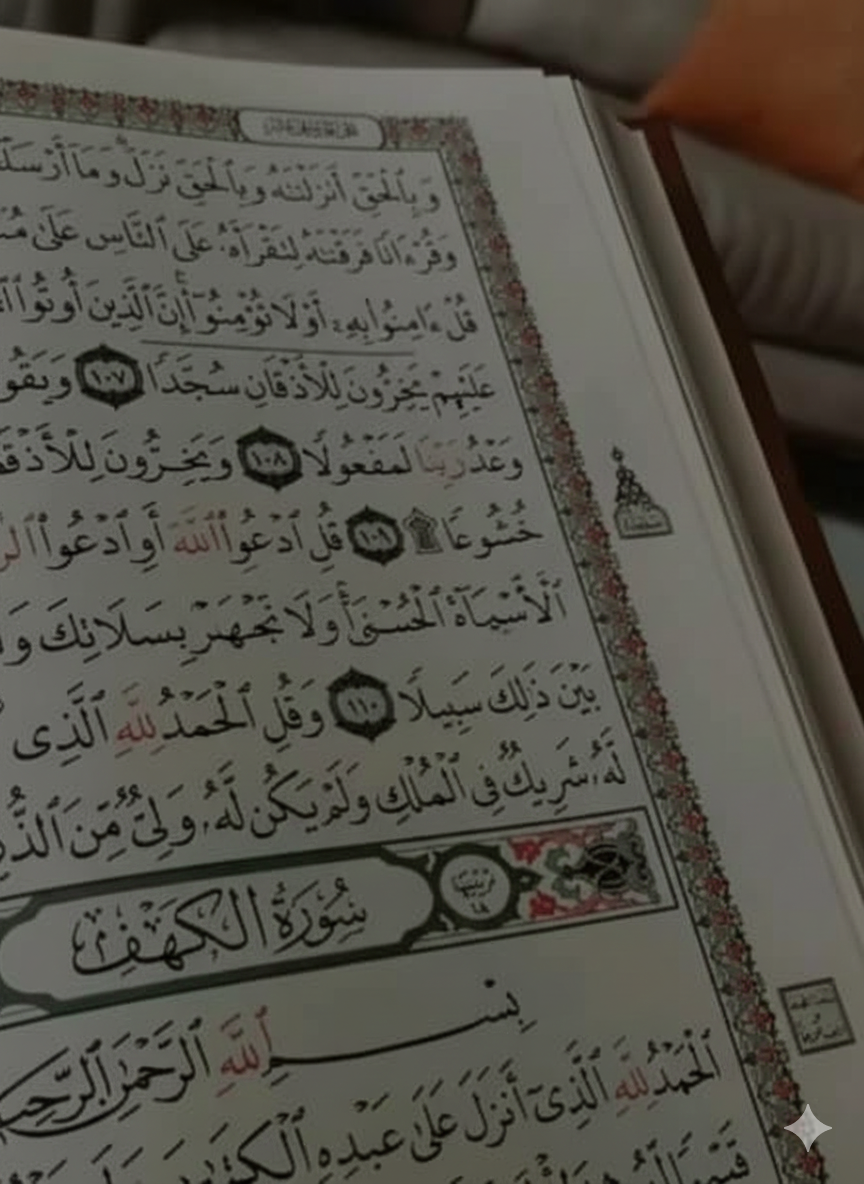 وَبِٱلْحَقِّ أَنزَلْنَٰهُ وَبِٱلْحَقِّ نَزَلَ وَمَا أَرْسَلَ
وَقُرْءَانًا فَرَقْنَٰهُ لِتَقْرَأَهُۥ عَلَى ٱلنَّاسِ عَلَىٰ
قُلْ ءَامِنُوا بِهِۦٓ أَوْ لَا تُؤْمِنُوٓا إِنَّ ٱلَّذِينَ أُوتُوا
عَلَيْهِمْ يَخِرُّونَ لِلْأَذْقَانِ سُجَّدًا ١٠٧ وَيَقُو
وَعْدُ رَبِّنَا لَمَفْعُولًا ١٠٨ وَيَخِرُّونَ لِلْأَذْقَ
خُشُوعًا ۩ قُلِ ٱدْعُوا ٱللَّهَ أَوِ ٱدْعُوا ٱلر
ٱلْحُسْنَىٰ وَلَا تَجْهَرْ بِسَلَاتِكَ وَلَ
بَيْنَ ذَٰلِكَ سَبِيلًا ١١٠ وَقُلِ ٱلْحَمْدُ لِلَّهِ ٱلَّذِى
لَّهُۥ شَرِيكٌ فِى ٱلْمُلْكِ وَلَمْ يَكُن لَّهُۥ وَلِىٌّ مِّنَ ٱلذُّ
سُورَةُ ٱلْكَهْفِ
بِسْمِ ٱللَّهِ ٱلرَّحْمَٰنِ ٱلرَّحِي
ٱلْحَمْدُ لِلَّهِ ٱلَّذِىٓ أَنزَلَ عَلَىٰ عَبْدِهِ ٱلْكِتَٰبَ